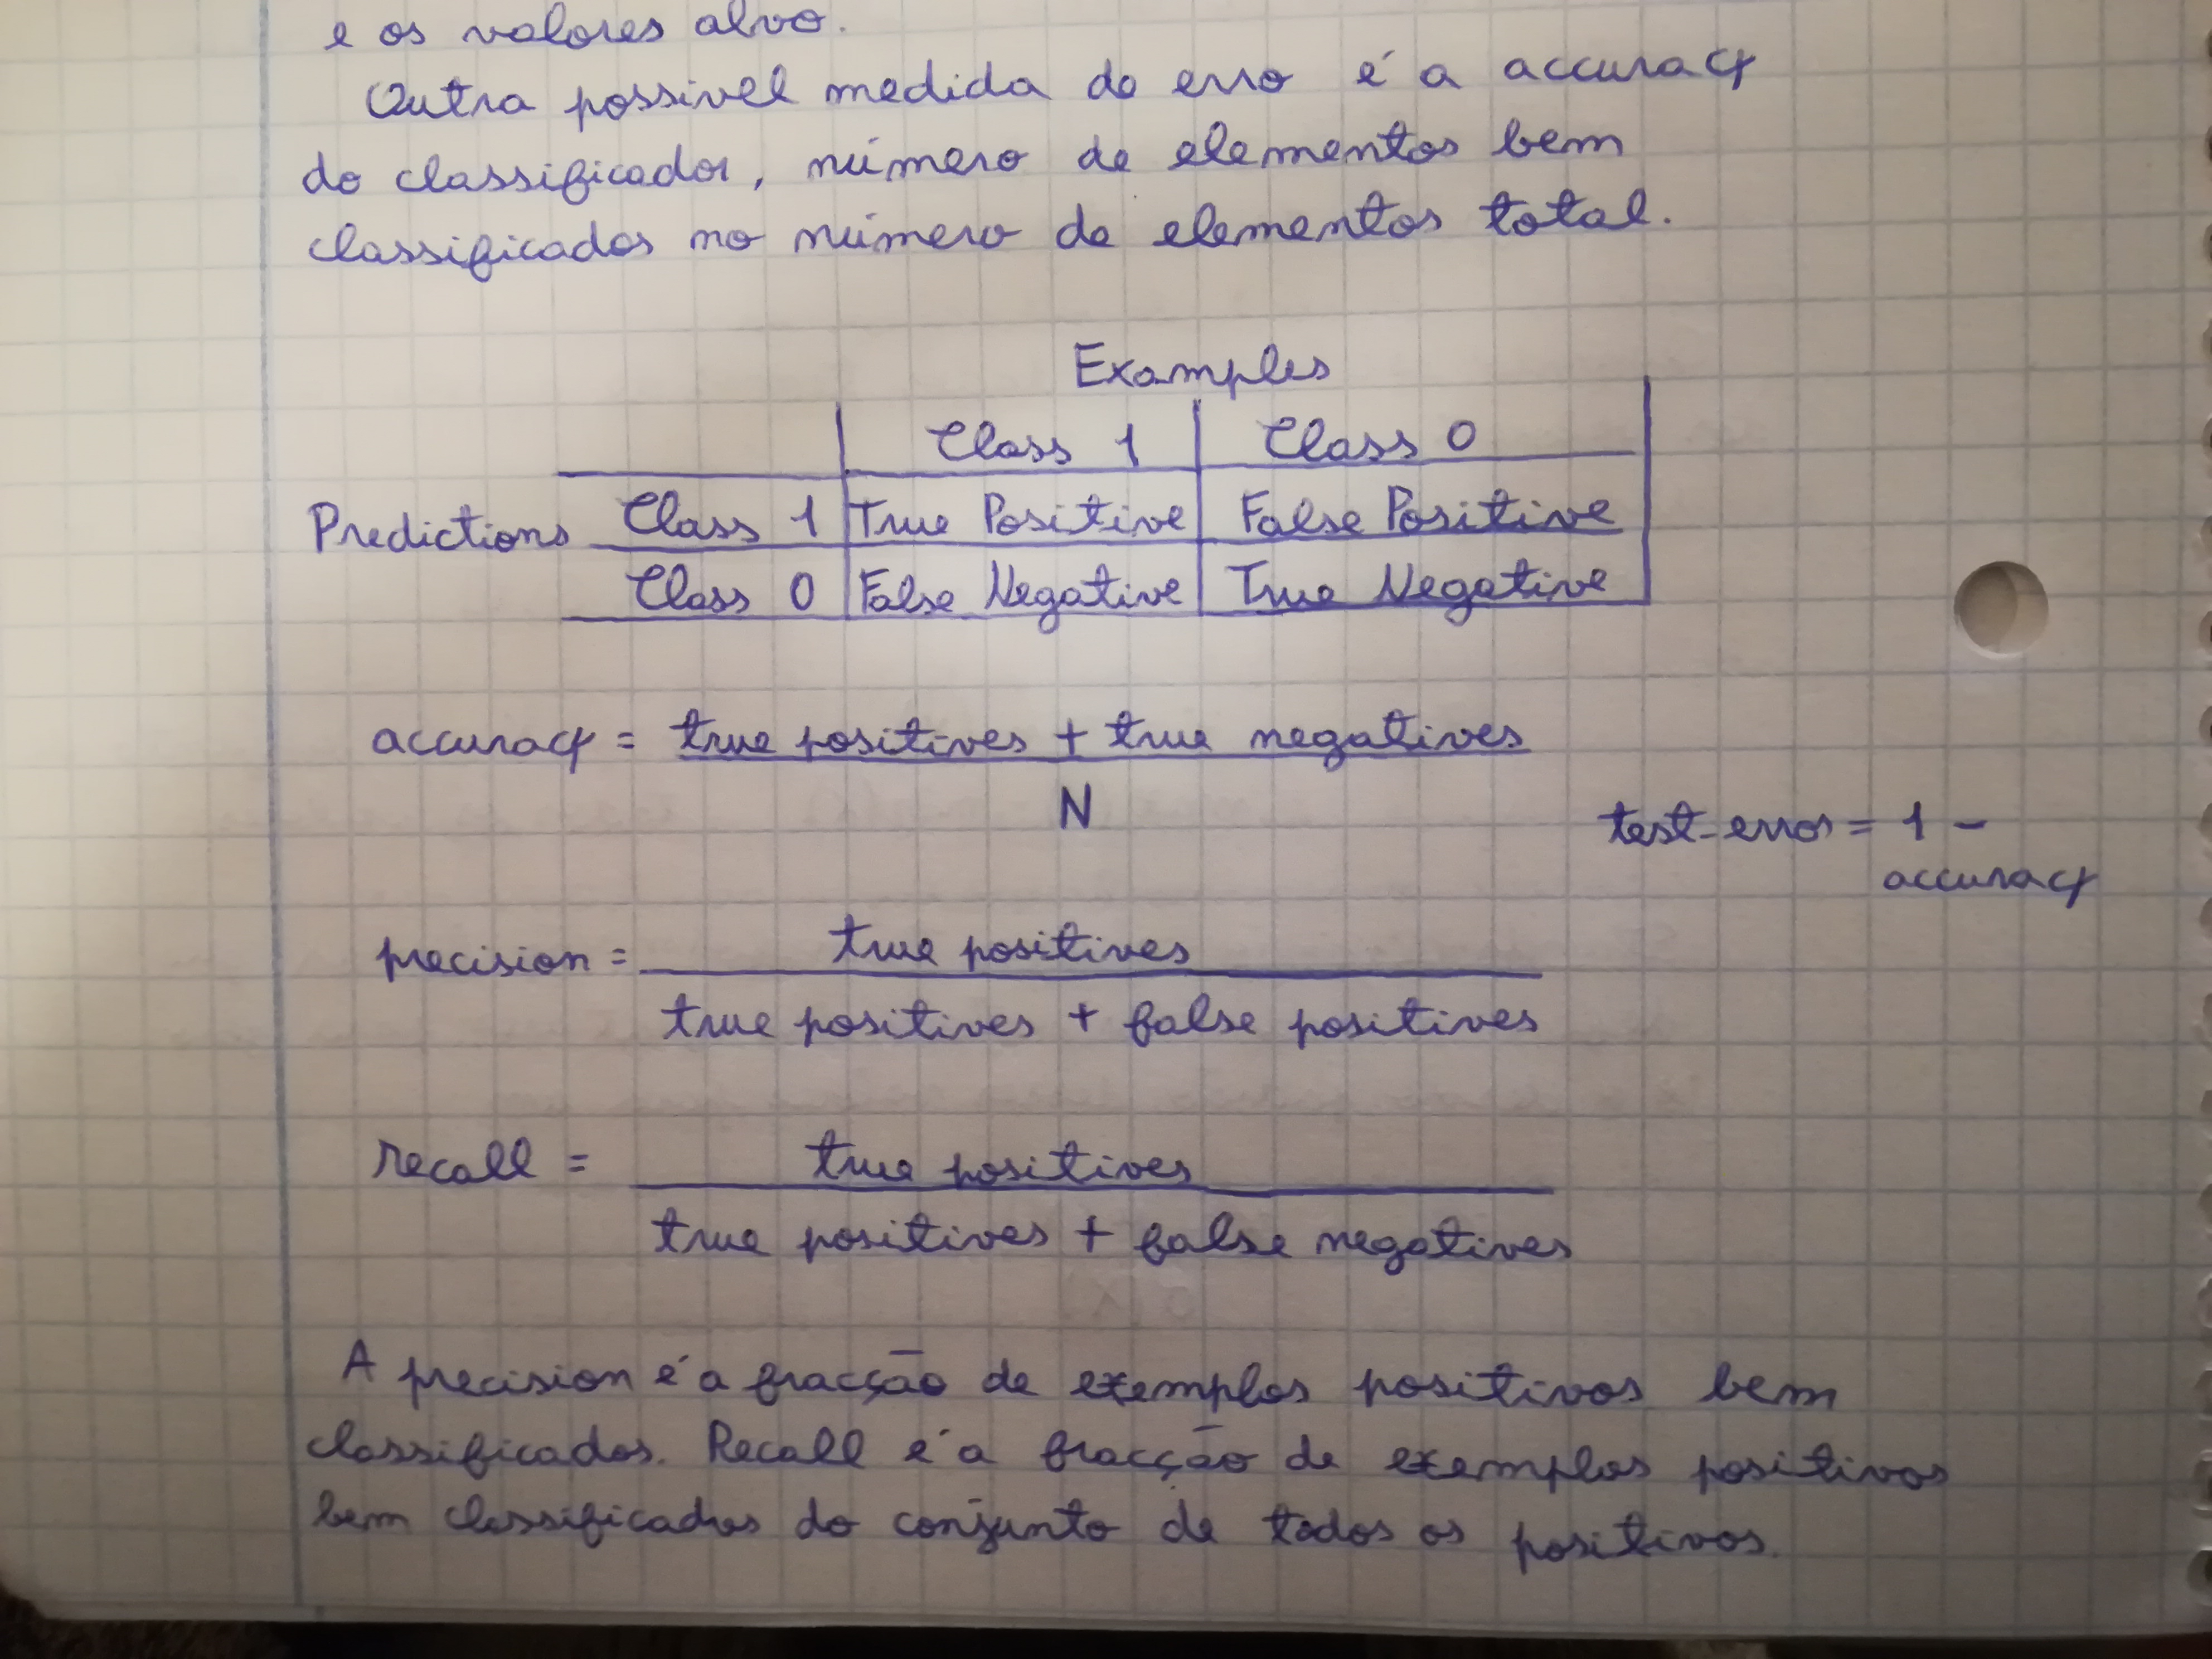 e os valores alvo.
Outra possivel medida do erro é a accuracy
do classificador, número de elementos bem
classificados no número de elementos total.
Examples
Class 1 Class 0
Predictions Class 1 True Positive False Positive
Class 0 False Negative True Negative
accuracy = true positives + true negatives
N
test-error = 1 -
accuracy
precision = true positives
true positives + false positives
recall = true positives
true positives + false negatives
A precision é a fracção de exemplos positivos bem
classificados. Recall é a fracção de exemplos positivos
bem classificados do conjunto de todos os positivos.